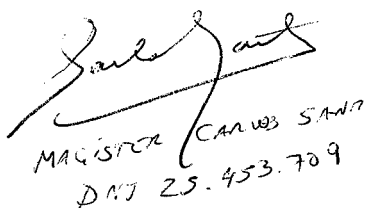 MAGISTER CARLOS SANT
DNI 25.453.709